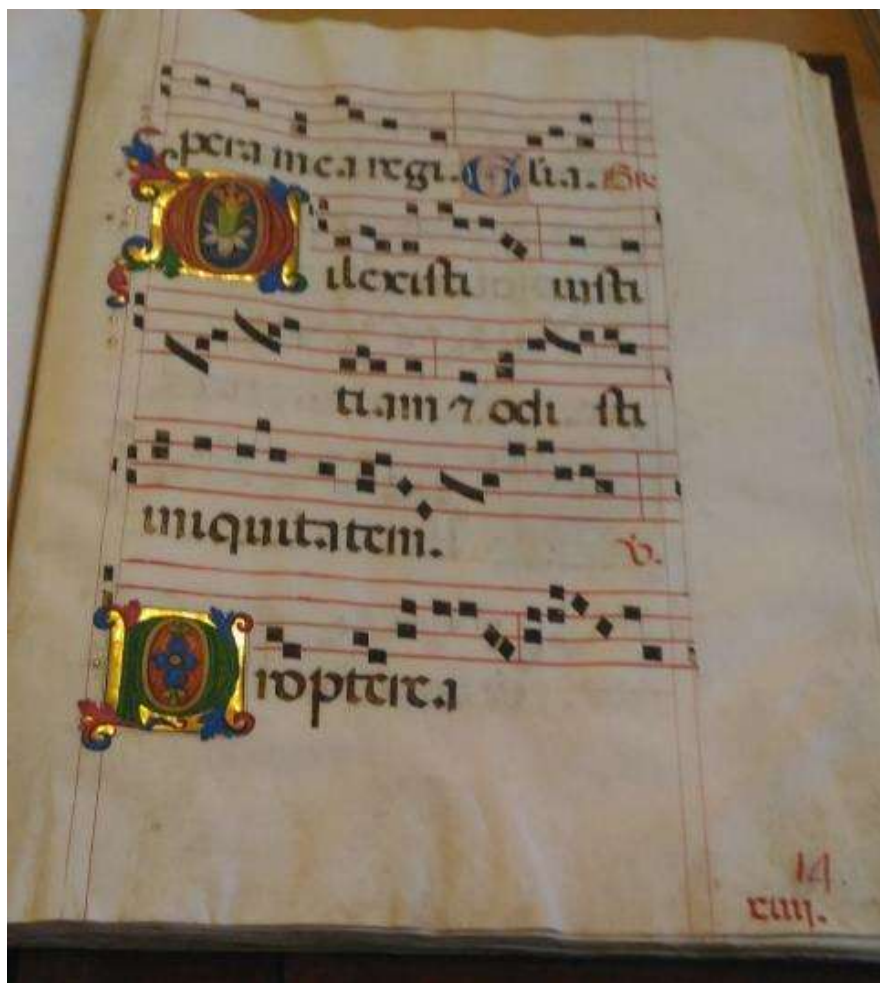 pera mea regi. Gl̅i.a. GR
Dilexisti iusti
tiam ⁊ odi sti
iniquitatem. V.
Propterea
14
xiiij.